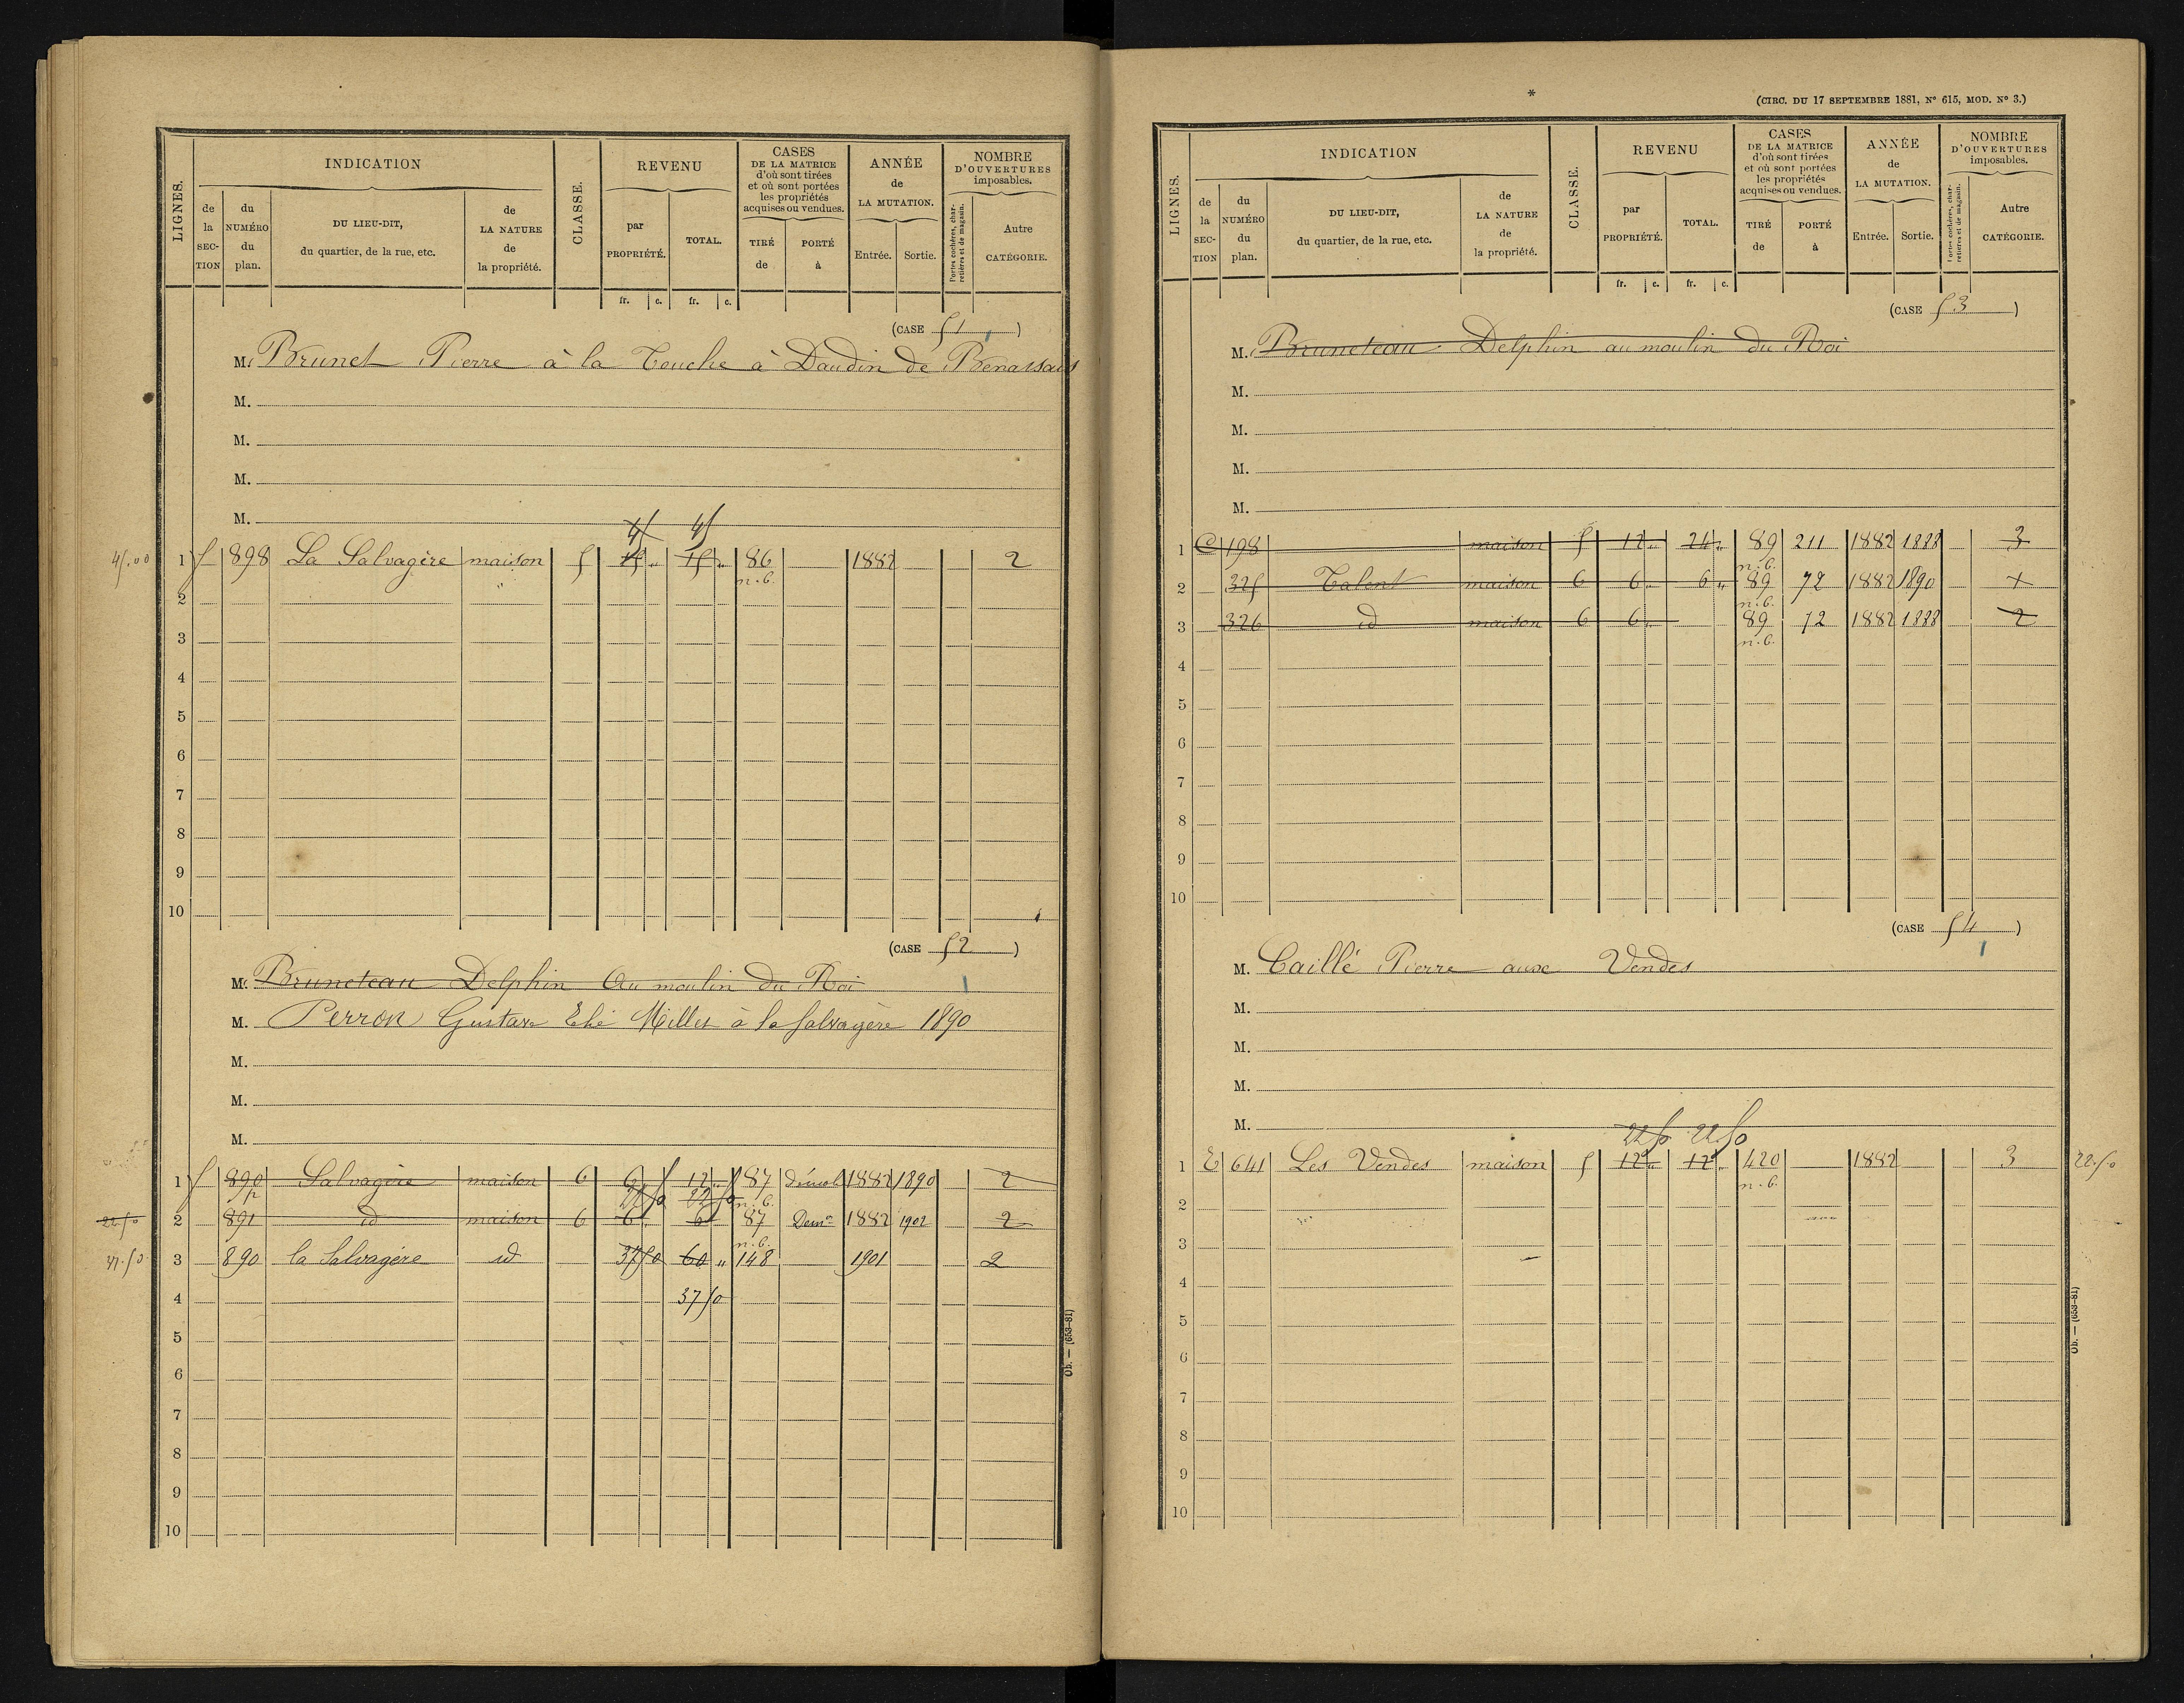 LIGNES.
INDICATION
de la SECTION
du NUMÉRO du plan.
DU LIEU-DIT, du quartier, de la rue, etc.
de LA NATURE de la propriété.
CLASSE.
REVENU
par PROPRIÉTÉ.
TOTAL.
fr. c. fr. c.
CASES DE LA MATRICE d'où sont tirées et où sont portées les propriétés acquises ou vendues.
TIRÉ de
PORTÉ à
ANNÉE de LA MUTATION.
Entrée. Sortie.
NOMBRE D'OUVERTURES imposables.
Portes cochères, charretières et de magasin.
Autre CATÉGORIE.
(CASE 51 )
M. Brunet Pierre à la Touche à Daudin de Benassais
M.
M.
M.
M.
45 45
45.00 1 5 898 La Salvagère maison 5 15 „ 15 „ 86 1882 2
n.b.
2
3
4
5
6
7
8
9
10
(CASE 52 )
M. Bruneteau Delphin Au moulin du Roi
M. Perron Gustave Millet à la Salvagère 1890
M.
M.
M.
1 5 890 Salvagère maison 6 6 12 „ 87 démol 1882 1890 2
p 22 50 22 50 n.b.
22.50 2 891 id maison 6 6 6 87 Dem 1882 1902 2
n.b.
37.50 3 890 la Salvagère id 37 50 60 „ 148 1901 2
4 37 50
5
6
7
8
9
10
Ob. — (653-81)
*
(CIRC. DU 17 SEPTEMBRE 1881, N° 615, MOD. N° 3.)
LIGNES.
INDICATION
de la SECTION
du NUMÉRO du plan.
DU LIEU-DIT, du quartier, de la rue, etc.
de LA NATURE de la propriété.
CLASSE.
REVENU
par PROPRIÉTÉ.
TOTAL.
fr. c. fr. c.
CASES DE LA MATRICE d'où sont tirées et où sont portées les propriétés acquises ou vendues.
TIRÉ de
PORTÉ à
ANNÉE de LA MUTATION.
Entrée. Sortie.
NOMBRE D'OUVERTURES imposables.
Portes cochères, charretières et de magasin.
Autre CATÉGORIE.
(CASE 53 )
M. Bruneteau Delphin au moulin du Roi
M.
M.
M.
M.
1 C 198 maison 5 12 „ 24 „ 89 211 1882 1888 3
n.b.
2 325 Talent maison 6 6 „ 6 „ 89 72 1882 1890
n.b.
3 326 id maison 6 6 „ 89 72 1882 1888 2
n.b.
4
5
6
7
8
9
10
(CASE 54 )
M. Caillé Pierre aux Vendes
M.
M.
M.
M.
22 50 22 50
1 E 641 Les Vendes maison 5 12 „ 12 „ 420 1882 3 22.50
n.b.
2
3
4
5
6
7
8
9
10
Ob. — (653-81)